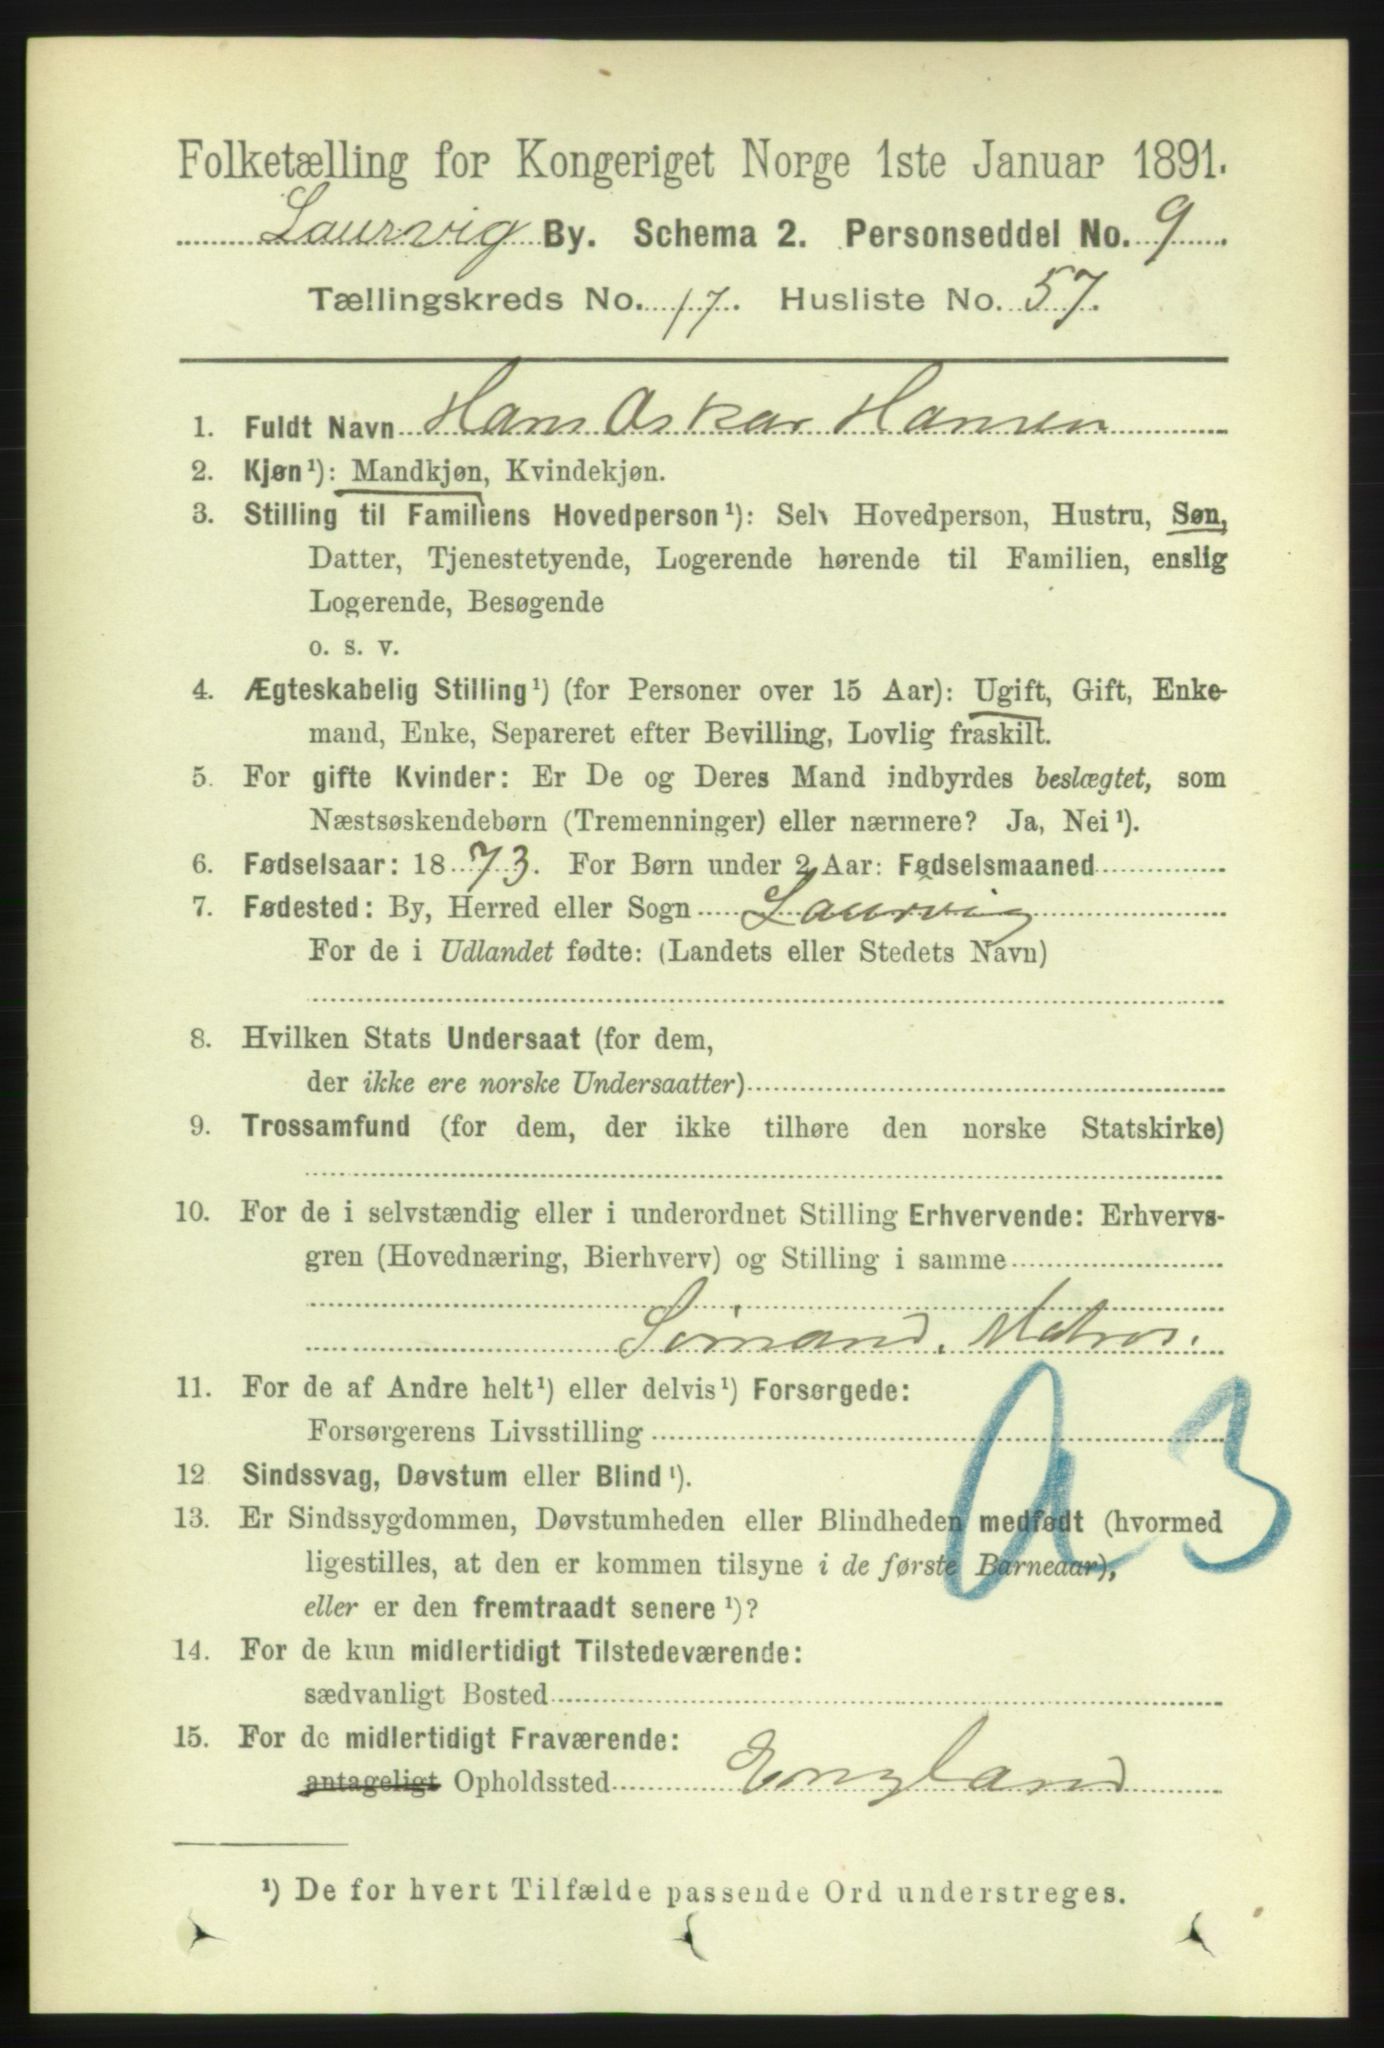 Folketælling for Kongeriget Norge 1ste Januar 1891.
Laurvig By. Schema 2. Personseddel No. 9
Tællingskreds No. 17. Husliste No. 57.
1. Fuldt Navn Hans Oskar Hansen
2. Kjøn¹): Mandkjøn, Kvindekjøn.
3. Stilling til Familiens Hovedperson¹): Selv Hovedperson, Hustru, Søn,
Datter, Tjenestetyende, Logerende hørende til Familien, enslig
Logerende, Besøgende
o. s. v.
4. Ægteskabelig Stilling¹) (for Personer over 15 Aar): Ugift, Gift, Enke-
mand, Enke, Separeret efter Bevilling, Lovlig fraskilt.
5. For gifte Kvinder: Er De og Deres Mand indbyrdes beslægtet, som
Næstsøskendebørn (Tremenninger) eller nærmere? Ja, Nei¹).
6. Fødselsaar: 1873. For Børn under 2 Aar: Fødselsmaaned
7. Fødested: By, Herred eller Sogn Laurvig
For de i Udlandet fødte: (Landets eller Stedets Navn)
8. Hvilken Stats Undersaat (for dem,
der ikke ere norske Undersaatter)
9. Trossamfund (for dem, der ikke tilhøre den norske Statskirke)
10. For de i selvstændig eller i underordnet Stilling Erhvervende: Erhvervs-
gren (Hovednæring, Bierhverv) og Stilling i samme
Sømand, Matros.
11. For de af Andre helt¹) eller delvis¹) Forsørgede:
Forsørgerens Livsstilling
12 Sindssvag, Døvstum eller Blind¹).
13. Er Sindssygdommen, Døvstumheden eller Blindheden medfødt (hvormed
ligestilles, at den er kommen tilsyne i de første Barneaar),
eller er den fremtraadt senere¹)?
14. For de kun midlertidigt Tilstedeværende:
sædvanligt Bosted
15. For de midlertidigt Fraværende:
antageligt Opholdssted England
¹) De for hvert Tilfælde passende Ord understreges.
a 3